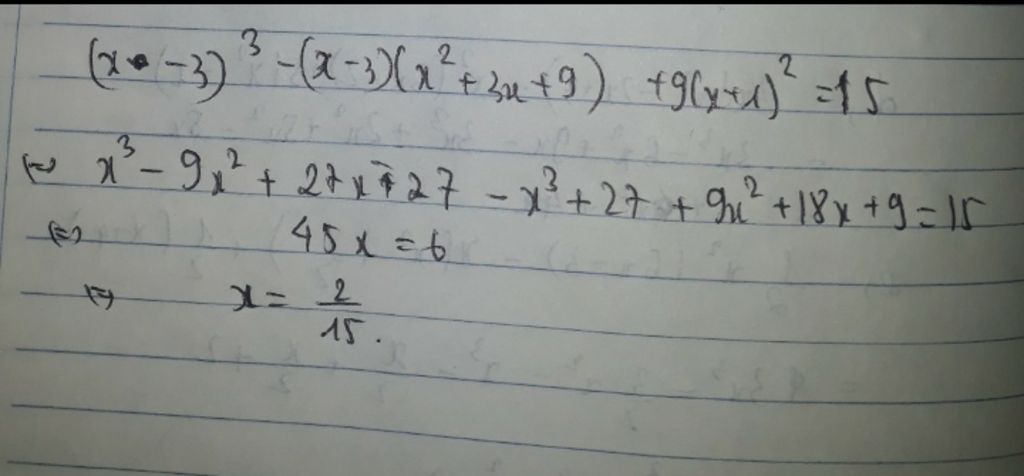 (x - 3)³ - (x - 3)(x² + 3x + 9) + 9(x + 1)² = 15
⇔ x³ - 9x² + 27x - 27 - x³ + 27 + 9x² + 18x + 9 = 15
⇔ 45x = 6
⇔ x = 2/15.